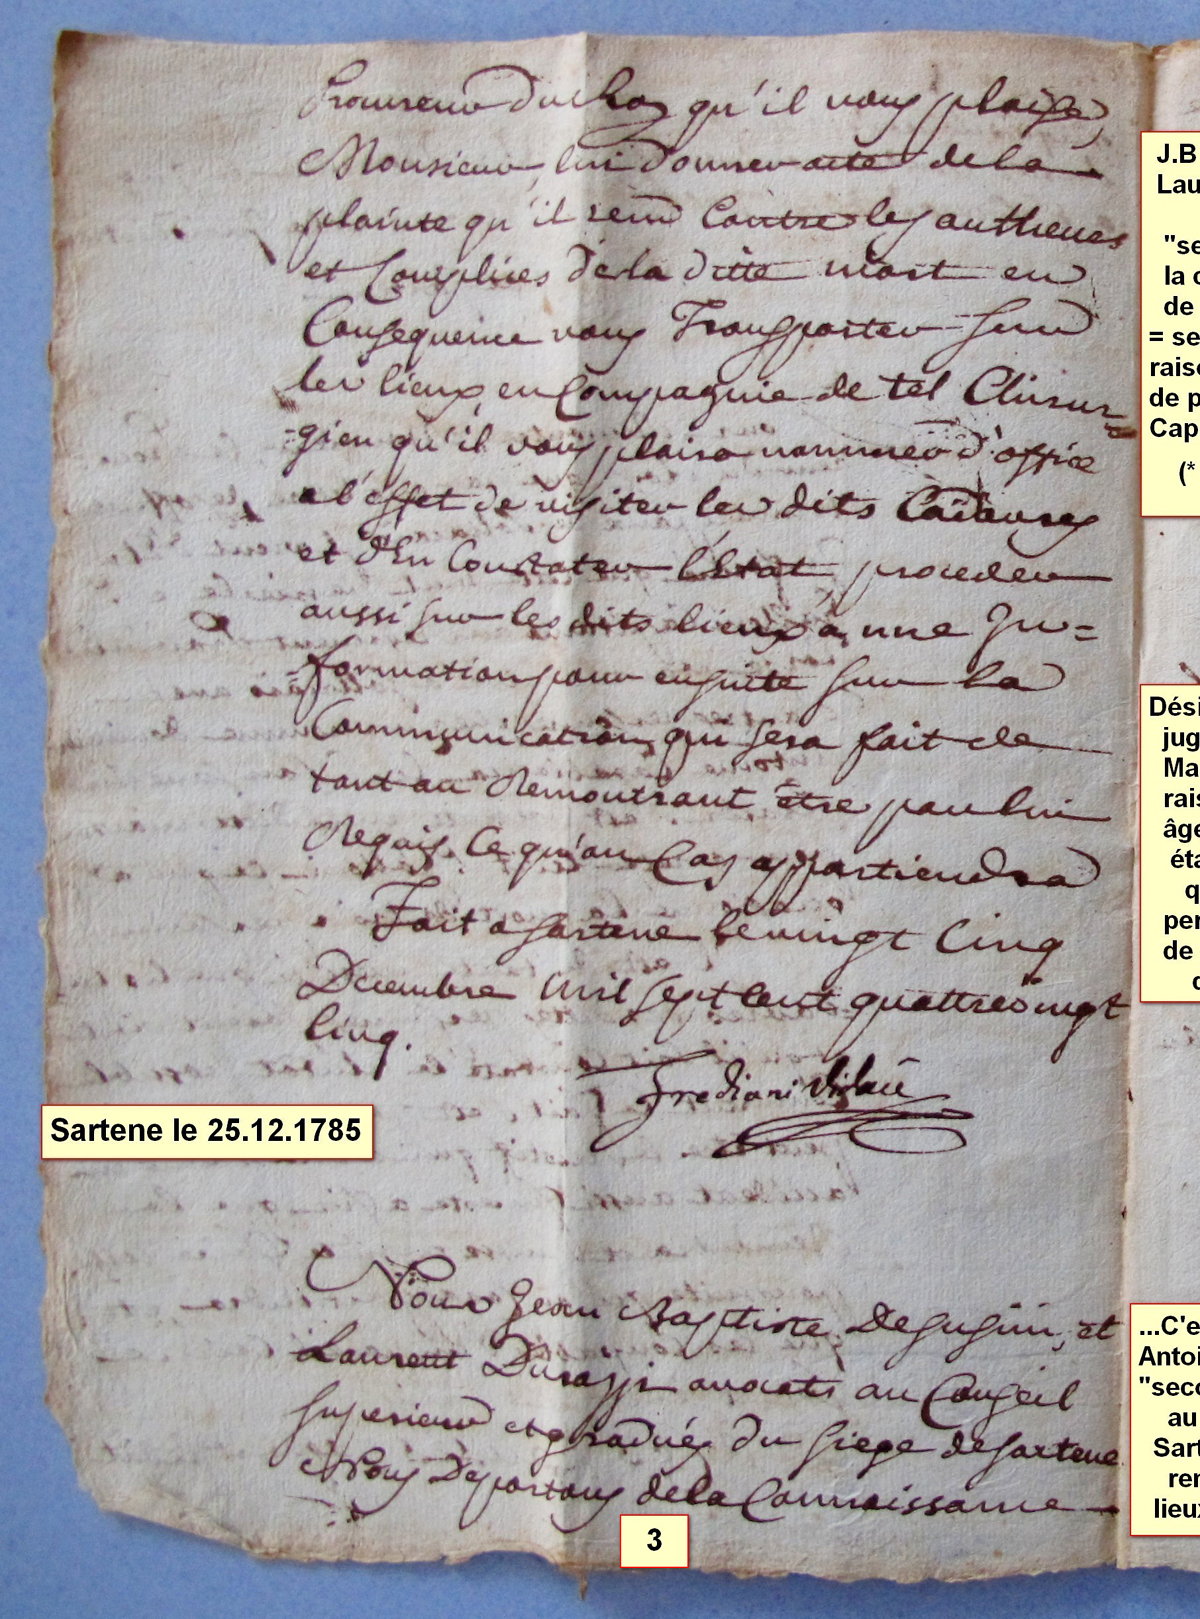 Procureur du Roy qu'il vous plaise,
Monsieur, lui donner acte de la
plainte qu'il rend Contre les autheurs
et Complices de la ditte mort en
Consequence vous Transporter sur
les lieux en Compagnie de tel Chirur-
gien qu'il vous plaira nommer d'office
a l'effet de visiter les dits Cadavres
et d'En Constater l'Etat, proceder
aussi sur les dits lieux a une In=
=formation pour ensuite sur la
Communication qui sera fait de
tout au Remontrant être par lui
Requis Ce qu'au Cas appartiendra
Fait a Sartene le vingt Cinq
Decembre mil sept Cent quattrevingt
Cinq.
Frediani Vidau
Sartene le 25.12.1785
Nous Jean Baptiste Susini, et
Laurent Durazzi avocats au Conseil
Superieur et gradués du siege de Sartene
Nous Deportons de la Connaissance
3
J.B
Lau
"se
la c
de
= se
rais
de p
Cap
(*
Dési
jug
Ma
rais
âge
éta
q
per
de
...C'e
Antoi
"seco
au
Sart
ren
lieux